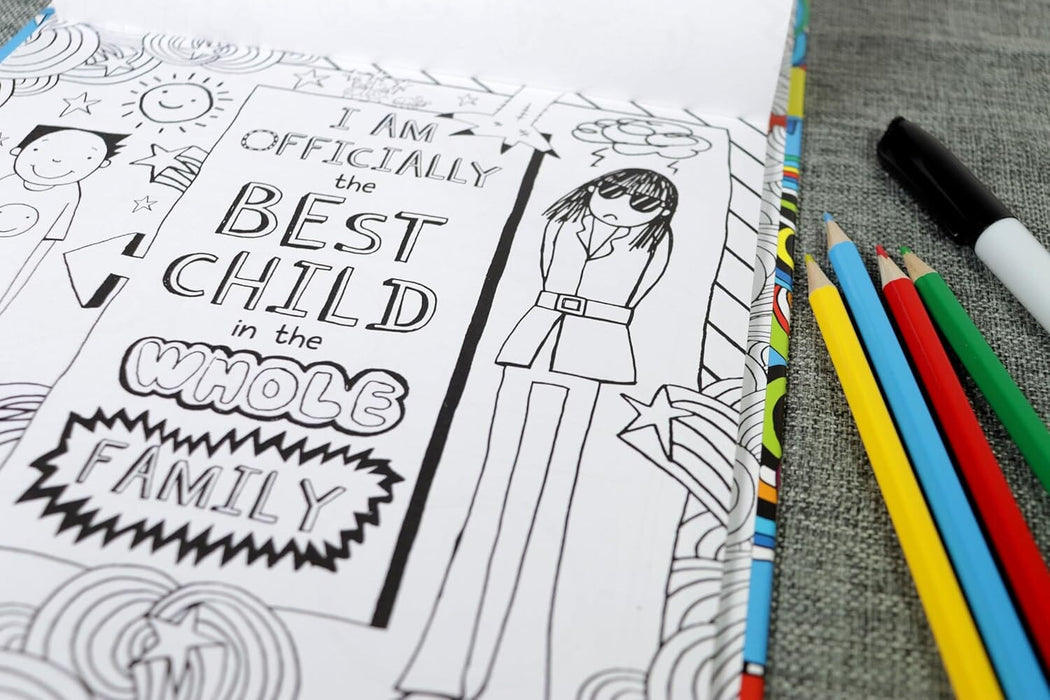 I AM
OFFICIALLY
the
BEST
CHILD
in the
WHOLE
FAMILY